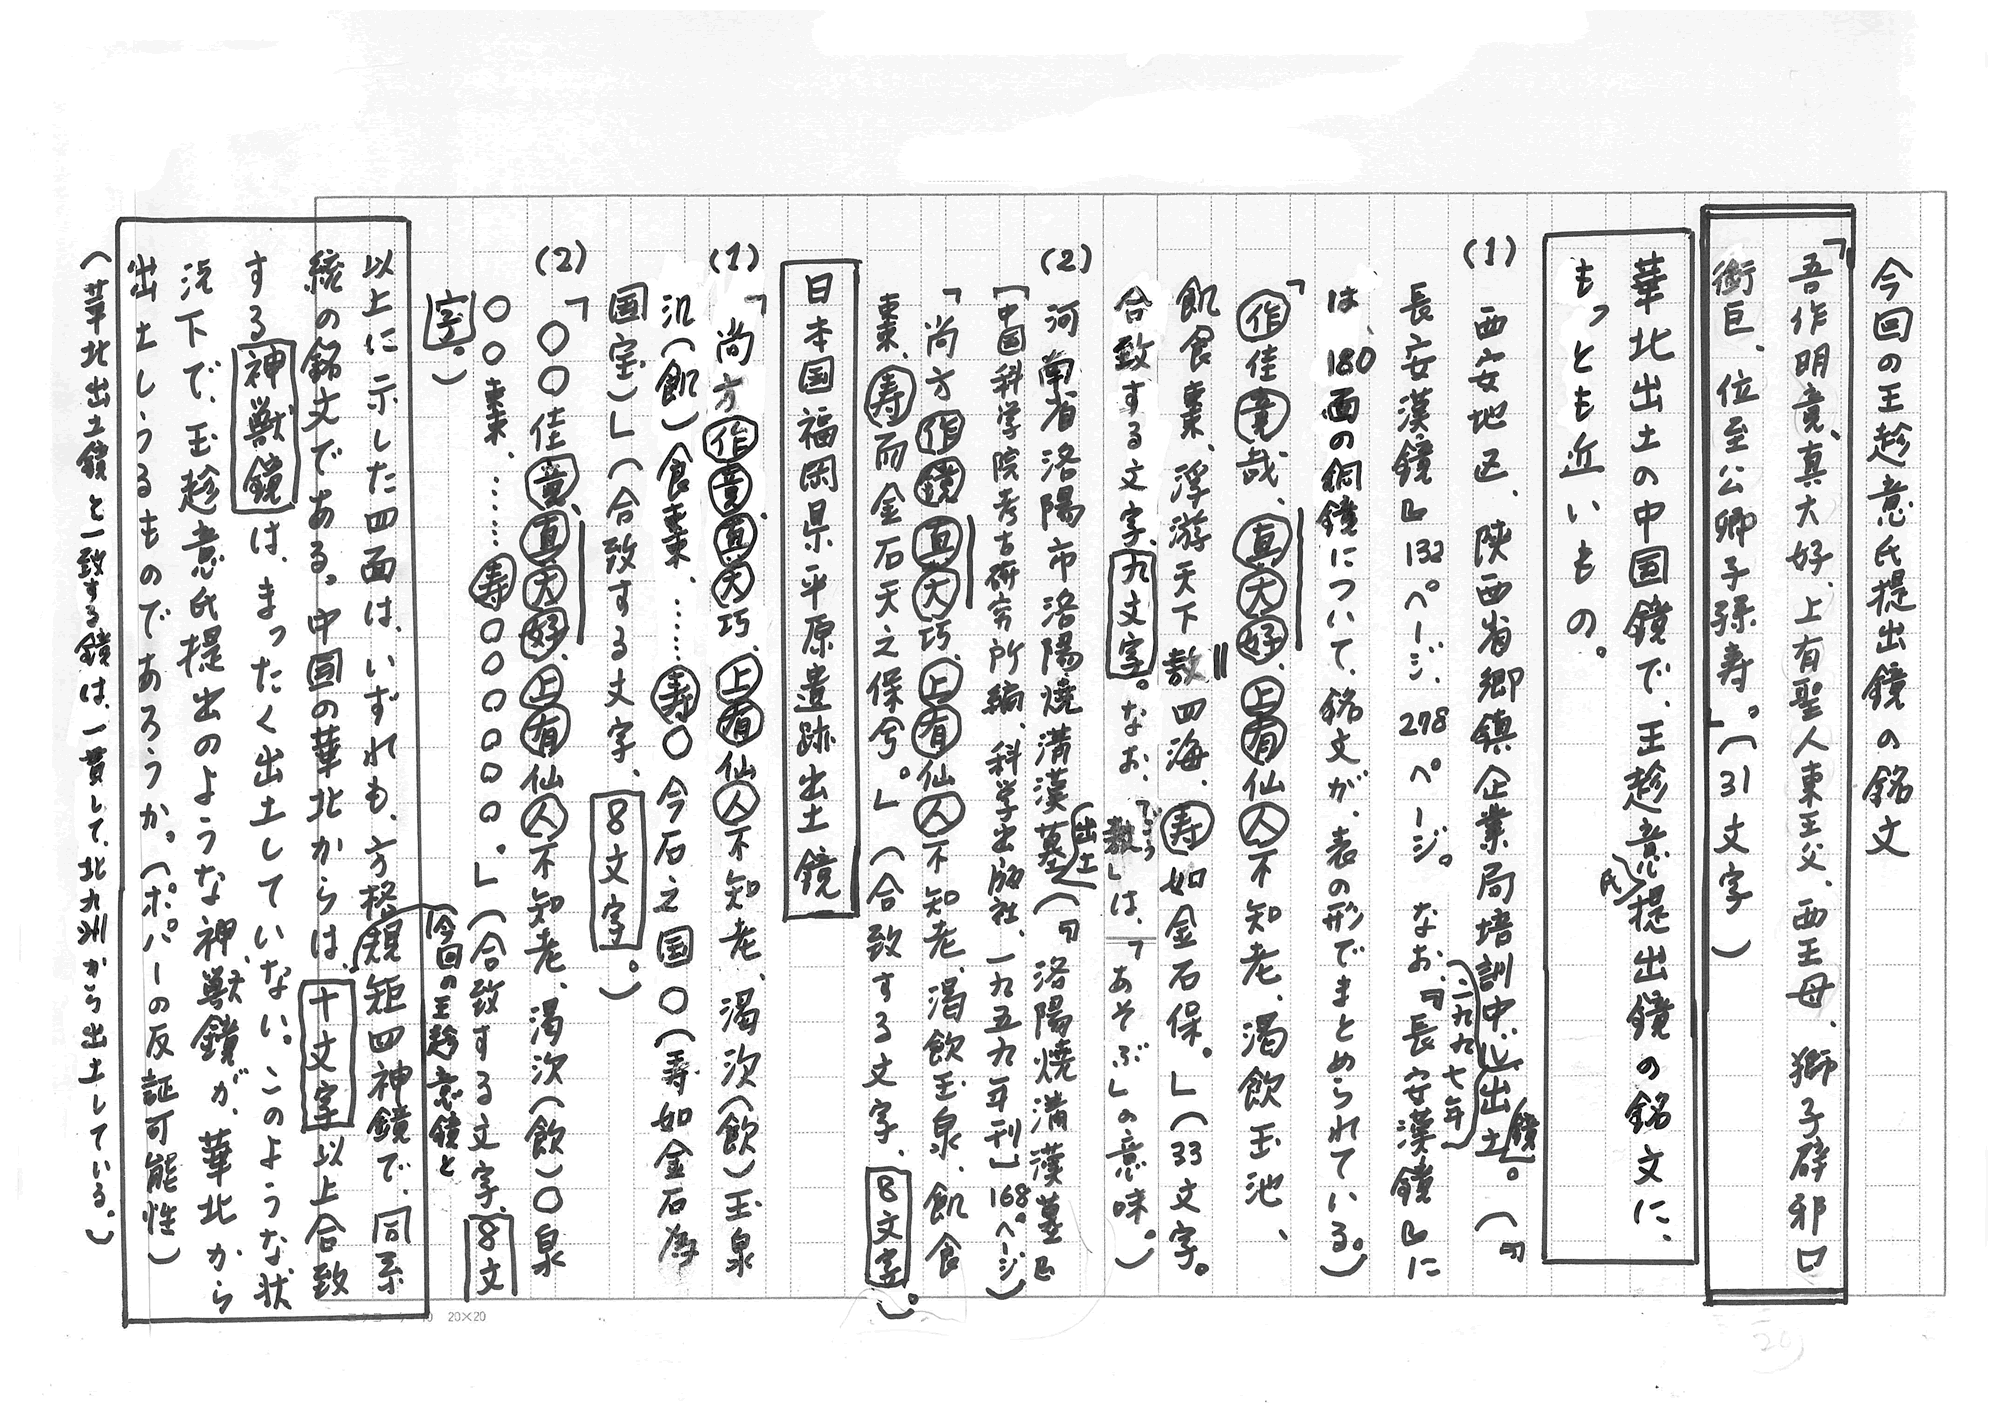 今回の王趁意氏提出鏡の銘文
「吾作明竟、真大好、上有聖人東王父、西王母、獅子辟邪口
銜巨、位至公卿子孫寿。」(31文字)
華北出土の中国鏡で、王趁意氏提出鏡の銘文に、
もっとも近いもの。
(1) 西安地区、陝西省郷鎮企業局培訓中心出土鏡。(『
長安漢鏡』132ページ、278ページ。なお、『長安漢鏡』(一九九七年)に
は、180面の銅鏡について、銘文が、表の形でまとめられている。)
「作佳竟哉、真大好、上有仙人不知老、渇飲玉池、
飢食棗、浮游天下敖四海、寿如金石保。」(33文字。
合致する文字、九文字。なお、「敖(ごう)」は、「あそぶ」の意味。)
(2) 河南省洛陽市洛陽焼溝漢墓出土(『洛陽焼溝漢墓』
[中国科学院考古研究所編、科学出版社、一九五九年刊]168ページ)
「尚方作鏡真大巧、上有仙人不知老、渇飲玉泉、飢食
棗、寿而金石天之保兮。」(合致する文字、8文字。)
日本国福岡県平原遺跡出土鏡
(1)「尚方作竟真大巧、上有仙人不知老、渇次(飲)玉泉
汎(飢)食棗、……寿○今石之国○(寿如金石為
国宝)」(合致する文字、8文字。)
(2)「○○佳竟真大好、上有仙人不知老、渇次(飲)○泉
○○棗、……寿○○○○○○。」(合致する文字、8文
字。)
以上に示した四面は、いずれも、方格規矩四神鏡で、同系
統の銘文である。中国の華北からは、今回の王趁意鏡と十文字以上合致
する神獣鏡は、まったく出土していない。このような状
況下で、王趁意氏提出のような神獣鏡が、華北から
出土しうるものであろうか。(ポパーの反証可能性)
(華北出土鏡と一致する鏡は、一貫して、北九州から出土している。)
20×20